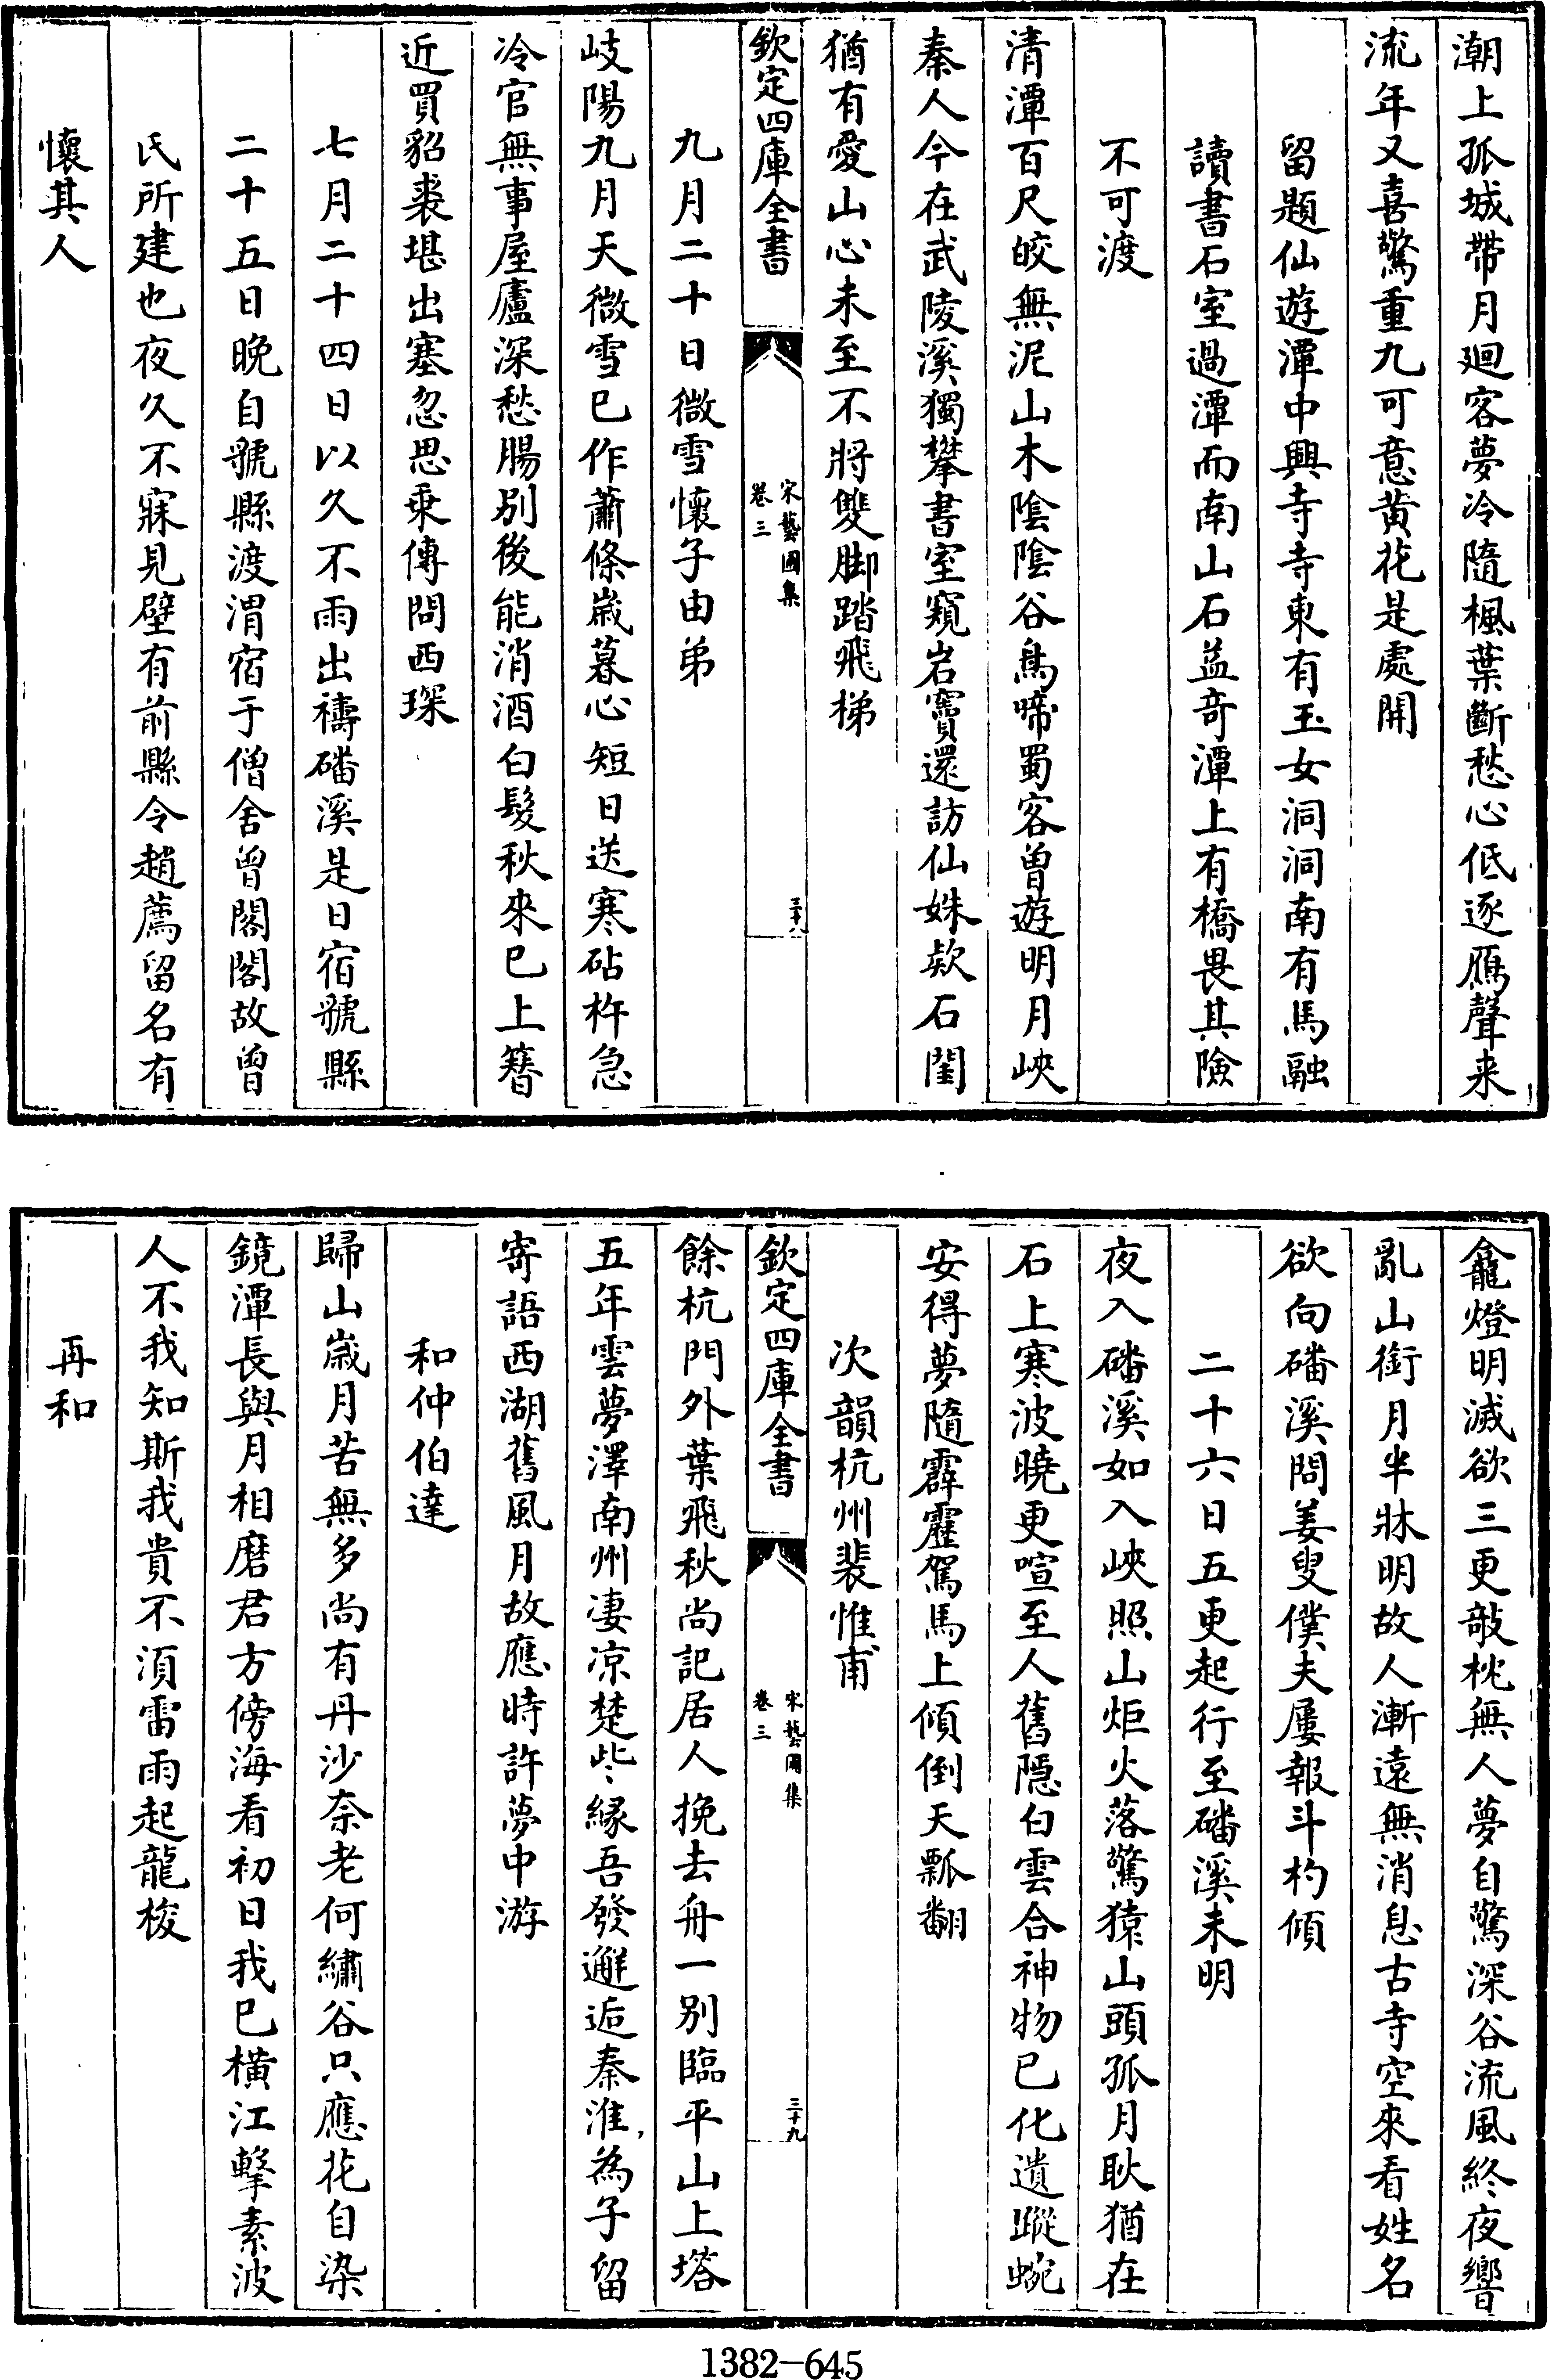 潮上孤城帶月廻客夢冷隨楓葉斷愁心低逐鴈聲来
流年又喜驚重九可意黄花是處開
留題仙遊潭中興寺寺東有玉女洞洞南有馬融
讀書石室過潭而南山石益竒潭上有橋畏其險
不可渡
清潭百尺皎無泥山木陰陰谷鳥啼蜀客曽遊明月峽
秦人今在武陵溪獨攀書室窺岩竇還訪仙姝欵石閨
猶有愛山心未至不將雙脚踏飛梯
欽定四庫全書
宋藝圃集
卷三
三十八
九月二十日微雪懷子由弟
岐陽九月天微雪已作蕭條嵗暮心短日送寒砧杵急
冷官無事屋廬深愁腸别後能消酒白髮秋來已上簪
近買貂裘堪出塞忽思乗傳問西琛
七月二十四日以久不雨出禱磻溪是日宿虢縣
二十五日晚自虢縣渡渭宿于僧舍曾閣閣故曾
氏所建也夜久不寐見壁有前縣令趙薦留名有
懷其人
龕燈明滅欲三更敧枕無人夢自驚深谷流風終夜響
亂山銜月半牀明故人漸遠無消息古寺空來看姓名
欲向磻溪問姜叟僕夫屢報斗杓傾
二十六日五更起行至磻溪未明
夜入磻溪如入峽照山炬火落驚猿山頭孤月耿猶在
石上寒波曉更喧至人舊隱白雲合神物已化遺蹤蜿
安得夢隨霹靂駕馬上傾倒天瓢翻
次韻杭州裴惟甫
欽定四庫全書
宋藝圃集
卷三
三十九
餘杭門外葉飛秋尚記居人挽去舟一别臨平山上塔
五年雲夢澤南州凄凉楚些縁吾發邂逅秦淮為子留
寄語西湖舊風月故應時許夢中游
和仲伯達
歸山嵗月苦無多尚有丹沙奈老何繡谷只應花自染
鏡潭長與月相磨君方傍海看初日我已横江擊素波
人不我知斯我貴不湏雷雨起龍梭
再和
1382-645